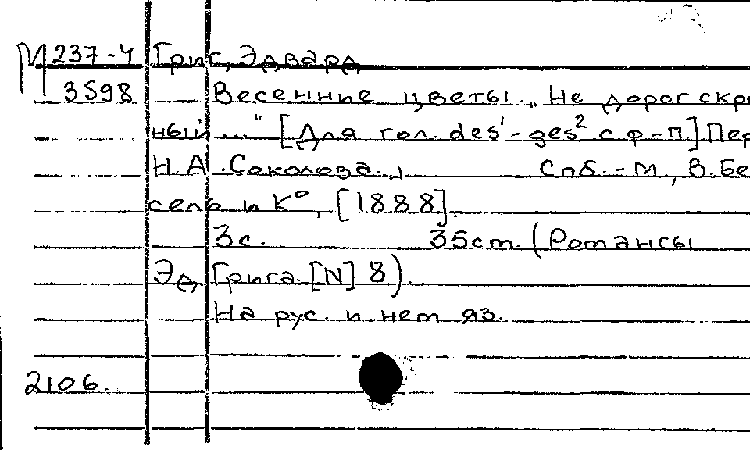 М 237-4 Григ, Эдвард
3598 Весенние цветы. „Не дорог скр
ный ..." [Для гол. des¹-ges² с ф-п.] Пер
Н.А. Соколова., Спб. - М., В. Бе
сель и К°, [1888]
3с. 35cm. (Романсы
Эд. Грига. [N] 8).
На рус. и нем яз.
2106.